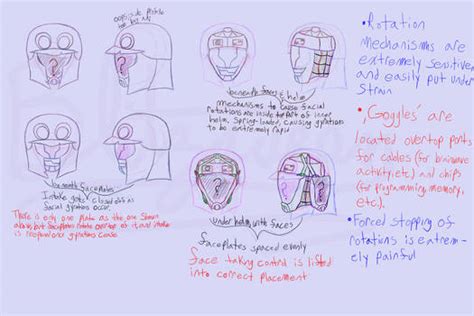 beneath faces & helm
Mechanisms to cause facial
rotations are inside top part of inner
helm, spring-loaded, causing gyrations
to be extremely rapid
beneath faceplates
Intake gets closed off as
facial gyrations occur.
There is only one plate as the one shown
above, but faceplates rotate overtop of it, and intake
is reopened once gyrations cease
under helm with faces
faceplates spaced evenly
face taking control is lifted
into correct placement
•Rotation
mechanisms are
extremely sensitive
and easily put under
strain
•'Goggles' are
located overtop ports
for cables (for brainwave
activity, etc.) and chips
(for programming, memory,
etc.).
•Forced stopping of
rotations is extrem-
ely painful